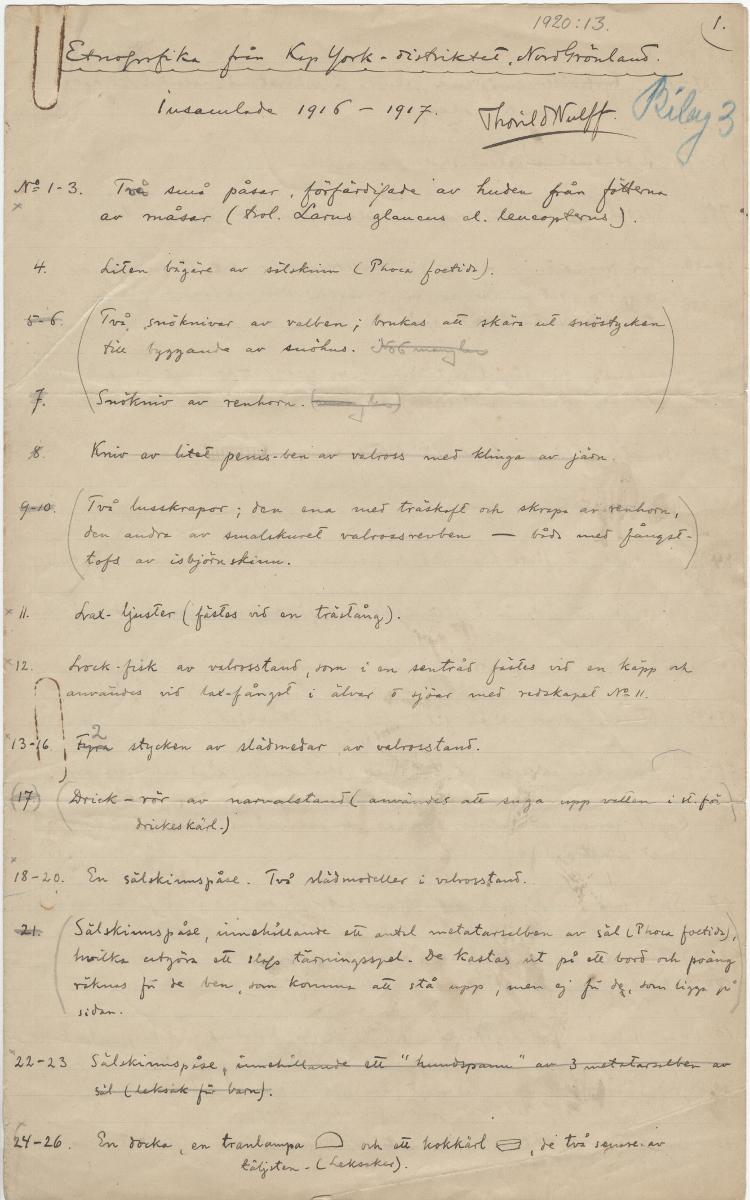 1920:13.
1.
Etnografika från Kap York-distriktet, NordGrönland.
Insamlade 1916 – 1917.
Thorild Wulff.
Bilag 3
No 1-3. Två små påsar, förfärdigade av huden från fötterna
av måsar (trol. Larus glaucus el. leucopterus).
4. Liten bägare av sälskinn (Phoca foetida).
5-6. (Två snöknivar av valben; brukas att skära ut snöstycken
till byggande av snöhus. No 6 mangler
7. Snökniv av renhorn. (mangler)
8. Kniv av litet penis-ben av valross med klinga av järn.
9-10. (Två lusskrapor; den ena med träskaft och skrapa av renhorn,
den andra av smalskuret valrossrevben — båda med fångst-
tofs av isbjörnskinn.
11. Lax-ljuster (fästes vid en trästång).
12. Lock-fisk av valrosstand, som i en sentråd fästes vid en käpp och
användes vid lax-fångst i älvar o sjöar med redskapet No 11.
2
13-16. Fyra stycken av slädmedar av valrosstand.
(17) (Drick-rör av narvalstand (användes att suga upp vatten i st. för
drickeskärl.)
18-20. En sälskinnspåse. Två slädmodeller i valrosstand.
21. (Sälskinnspåse, innehållande ett antal metatarselben av säl (Phoca foetida),
hvilka utgöra ett slags tärningsspel. De kastas ut på ett bord och poäng
räknas för de ben, som komma att stå upp, men ej för de, som ligga på
sidan.
22-23 Sälskinnspåse, innehållande ett "hundspann" av 3 metatarselben av
säl (leksak för barn).
24-26. En docka, en tranlampa och ett kokkärl, de två senare av
täljsten. (Leksaker).